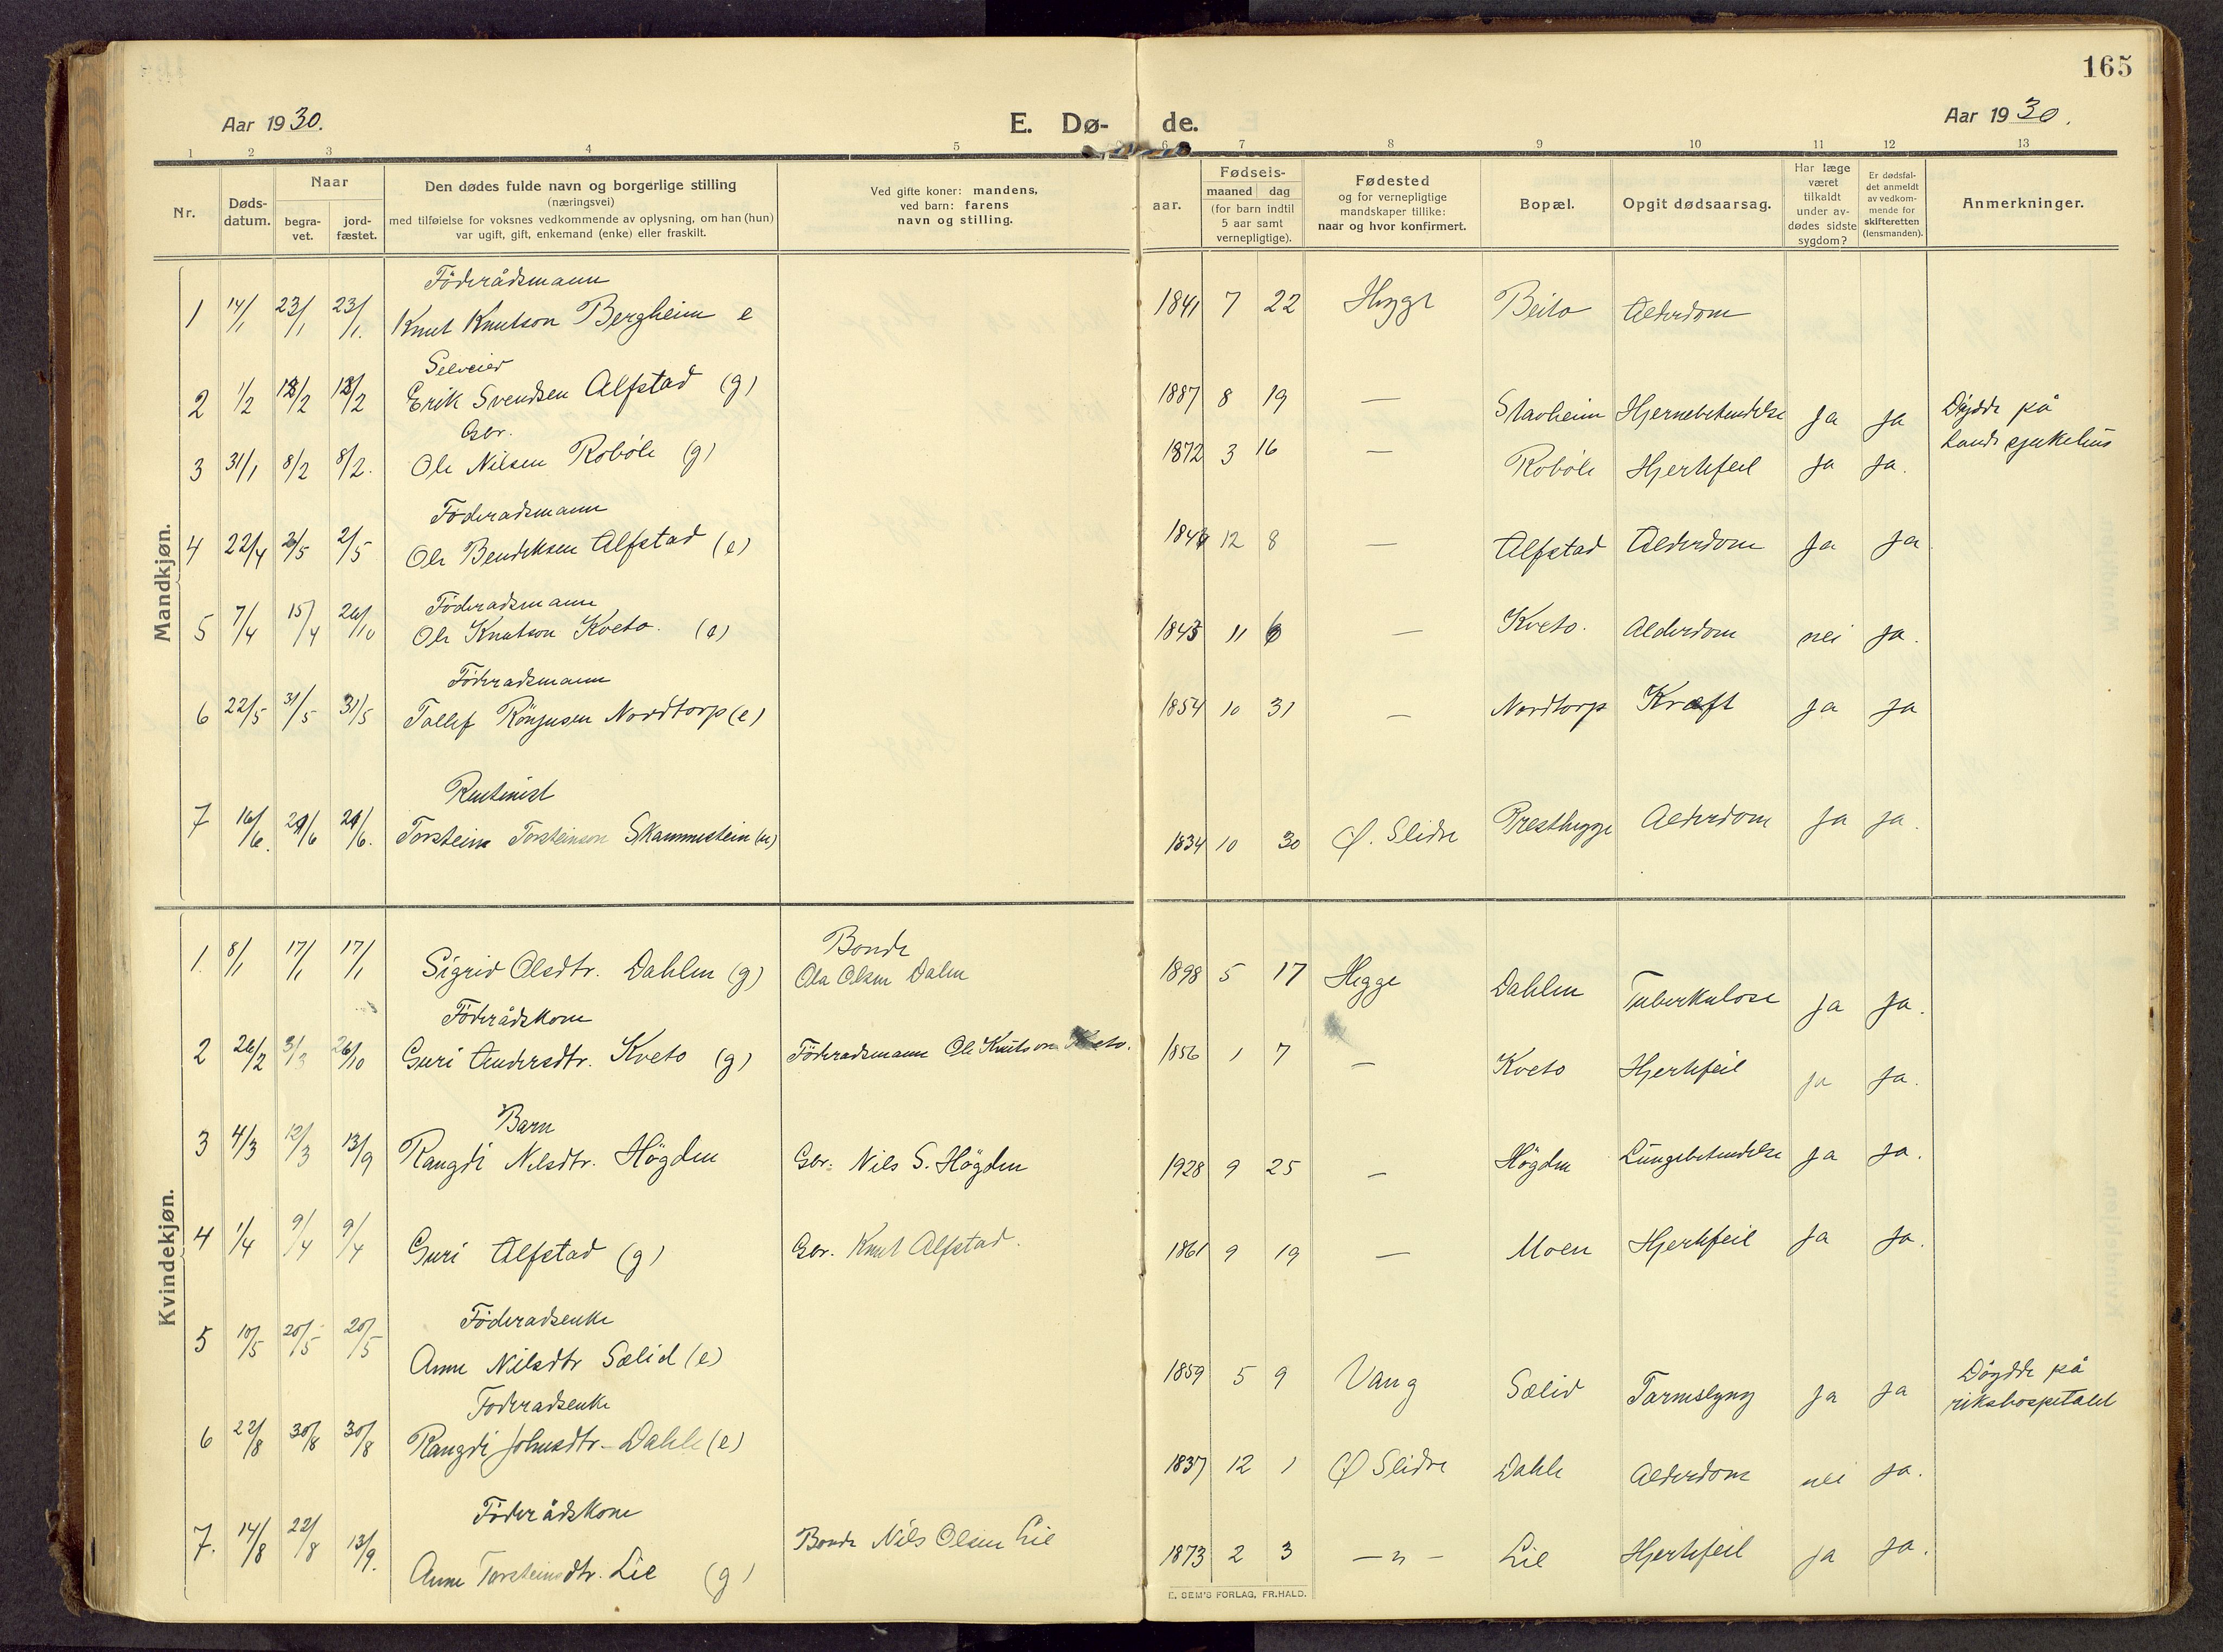 165
Aar 1930.
E. Dø- de.
Aar 1930.
1 2 3 4 5 6 7 8 9 10 11 12 13
Nr.
Døds-
datum.
Naar
begra-
vet.
jord-
fæstet.
Den dødes fulde navn og borgerlige stilling
(næringsvei)
med tilføielse for voksnes vedkommende av oplysning, om han (hun)
var ugift, gift, enkemand (enke) eller fraskilt.
Ved gifte koner: mandens,
ved barn: farens
navn og stilling.
aar.
Fødsels-
maaned dag
(for barn indtil
5 aar samt
vernepligtige).
Fødested
og for vernepligtige
mandskaper tillike:
naar og hvor konfirmert.
Bopæl.
Opgit dødsaarsag.
Har læge
været
tilkaldt
under av-
dødes sidste
sygdom?
Er dødsfal-
det anmeldt
av vedkom-
mende for
skifteretten
(lensmanden).
Anmerkninger.
Mandkjøn.
Föderådsmann
1 14/1 23/1 23/1. Knut Knutson Bergheim e 1841 7 22 Hegge Beito Alderdom
Selveier
2 1/2 12/2 12/2 Erik Svendsen Alfstad (g) 1887 8 19 — Stavheim Hjernebetendelse Ja Ja Döydde på
Lands sjukehus
Gbr.
3 31/1 8/2 8/2. Ole Nilsen Robøle (g) 1872 3 16 — Robøle Hjertefeil Ja Ja.
Föderadsmann
4 22/4 2/5 2/5 Ole Bendiksen Alfstad (e) 12 8 — Alfstad Alderdom Ja Ja.
Föderadsmann
5 7/4 15/4 26/10 Ole Knutson Kveto. (e) 1843 11 6 — Kveto. Alderdom nei Ja.
Föderadsmann
6 22/5 31/5 31/5 Tollef Nordtorp (e) 1854 10 31 — Nordtorp Kræft Ja Ja
Rentenist
7 16/6. 24/6 24/6. Torstein Torsteinson Skammestein (u) 1834 10 30 Ø. Slidre Presthegge Alderdom Ja Ja.
Kvindekjøn.
Bonde
1. 8/1 17/1 17/1 Sigrid Olsdtr. Dahlen (g) Ola Olsen Dalen 1898 5 17 Hegge Dahlen Tuberkulose Ja Ja.
Föderådskone
2 26/2 3/3 26/10 Guri Andersdtr. Kveto (g) Föderadsmann Ole Knutson Kveto. 1856 1 7 — Kveto Hjertefeil Ja Ja.
Barn
3 4/3 12/3 13/9 Rangdi Nilsdtr. Högden Gbr. Nils S. Högden 1928 9 25 — Högden Lungebetendelse Ja Ja.
4 1/4 9/4 9/4 Guri Alfstad (g) Gbr. Knut Alfstad. 1861 9 19 — Moen Hjertefeil Ja Ja.
Föderadsenke
5 10/5 20/5 20/5 Anne Nilsdtr Sælid (e) 1859 5 9 Vang Sælid Tarmslyng Ja Ja Döydde på
rikshospitalet
Föderadsenke
6 22/8 30/8 30/8 Rangdi Johnsdtr. Dahle (e) 1837 12 1 Ø Slidre Dahle Alderdom nei Ja.
Föderådskone
7. 14/8 22/8 13/9. Anne Torsteinsdtr. Lie (g) Bonde Nils Olsen Lie 1873 2 3 — " — Lie Hjertefeil Ja Ja.
E. SEM'S FORLAG, FR.HALD.